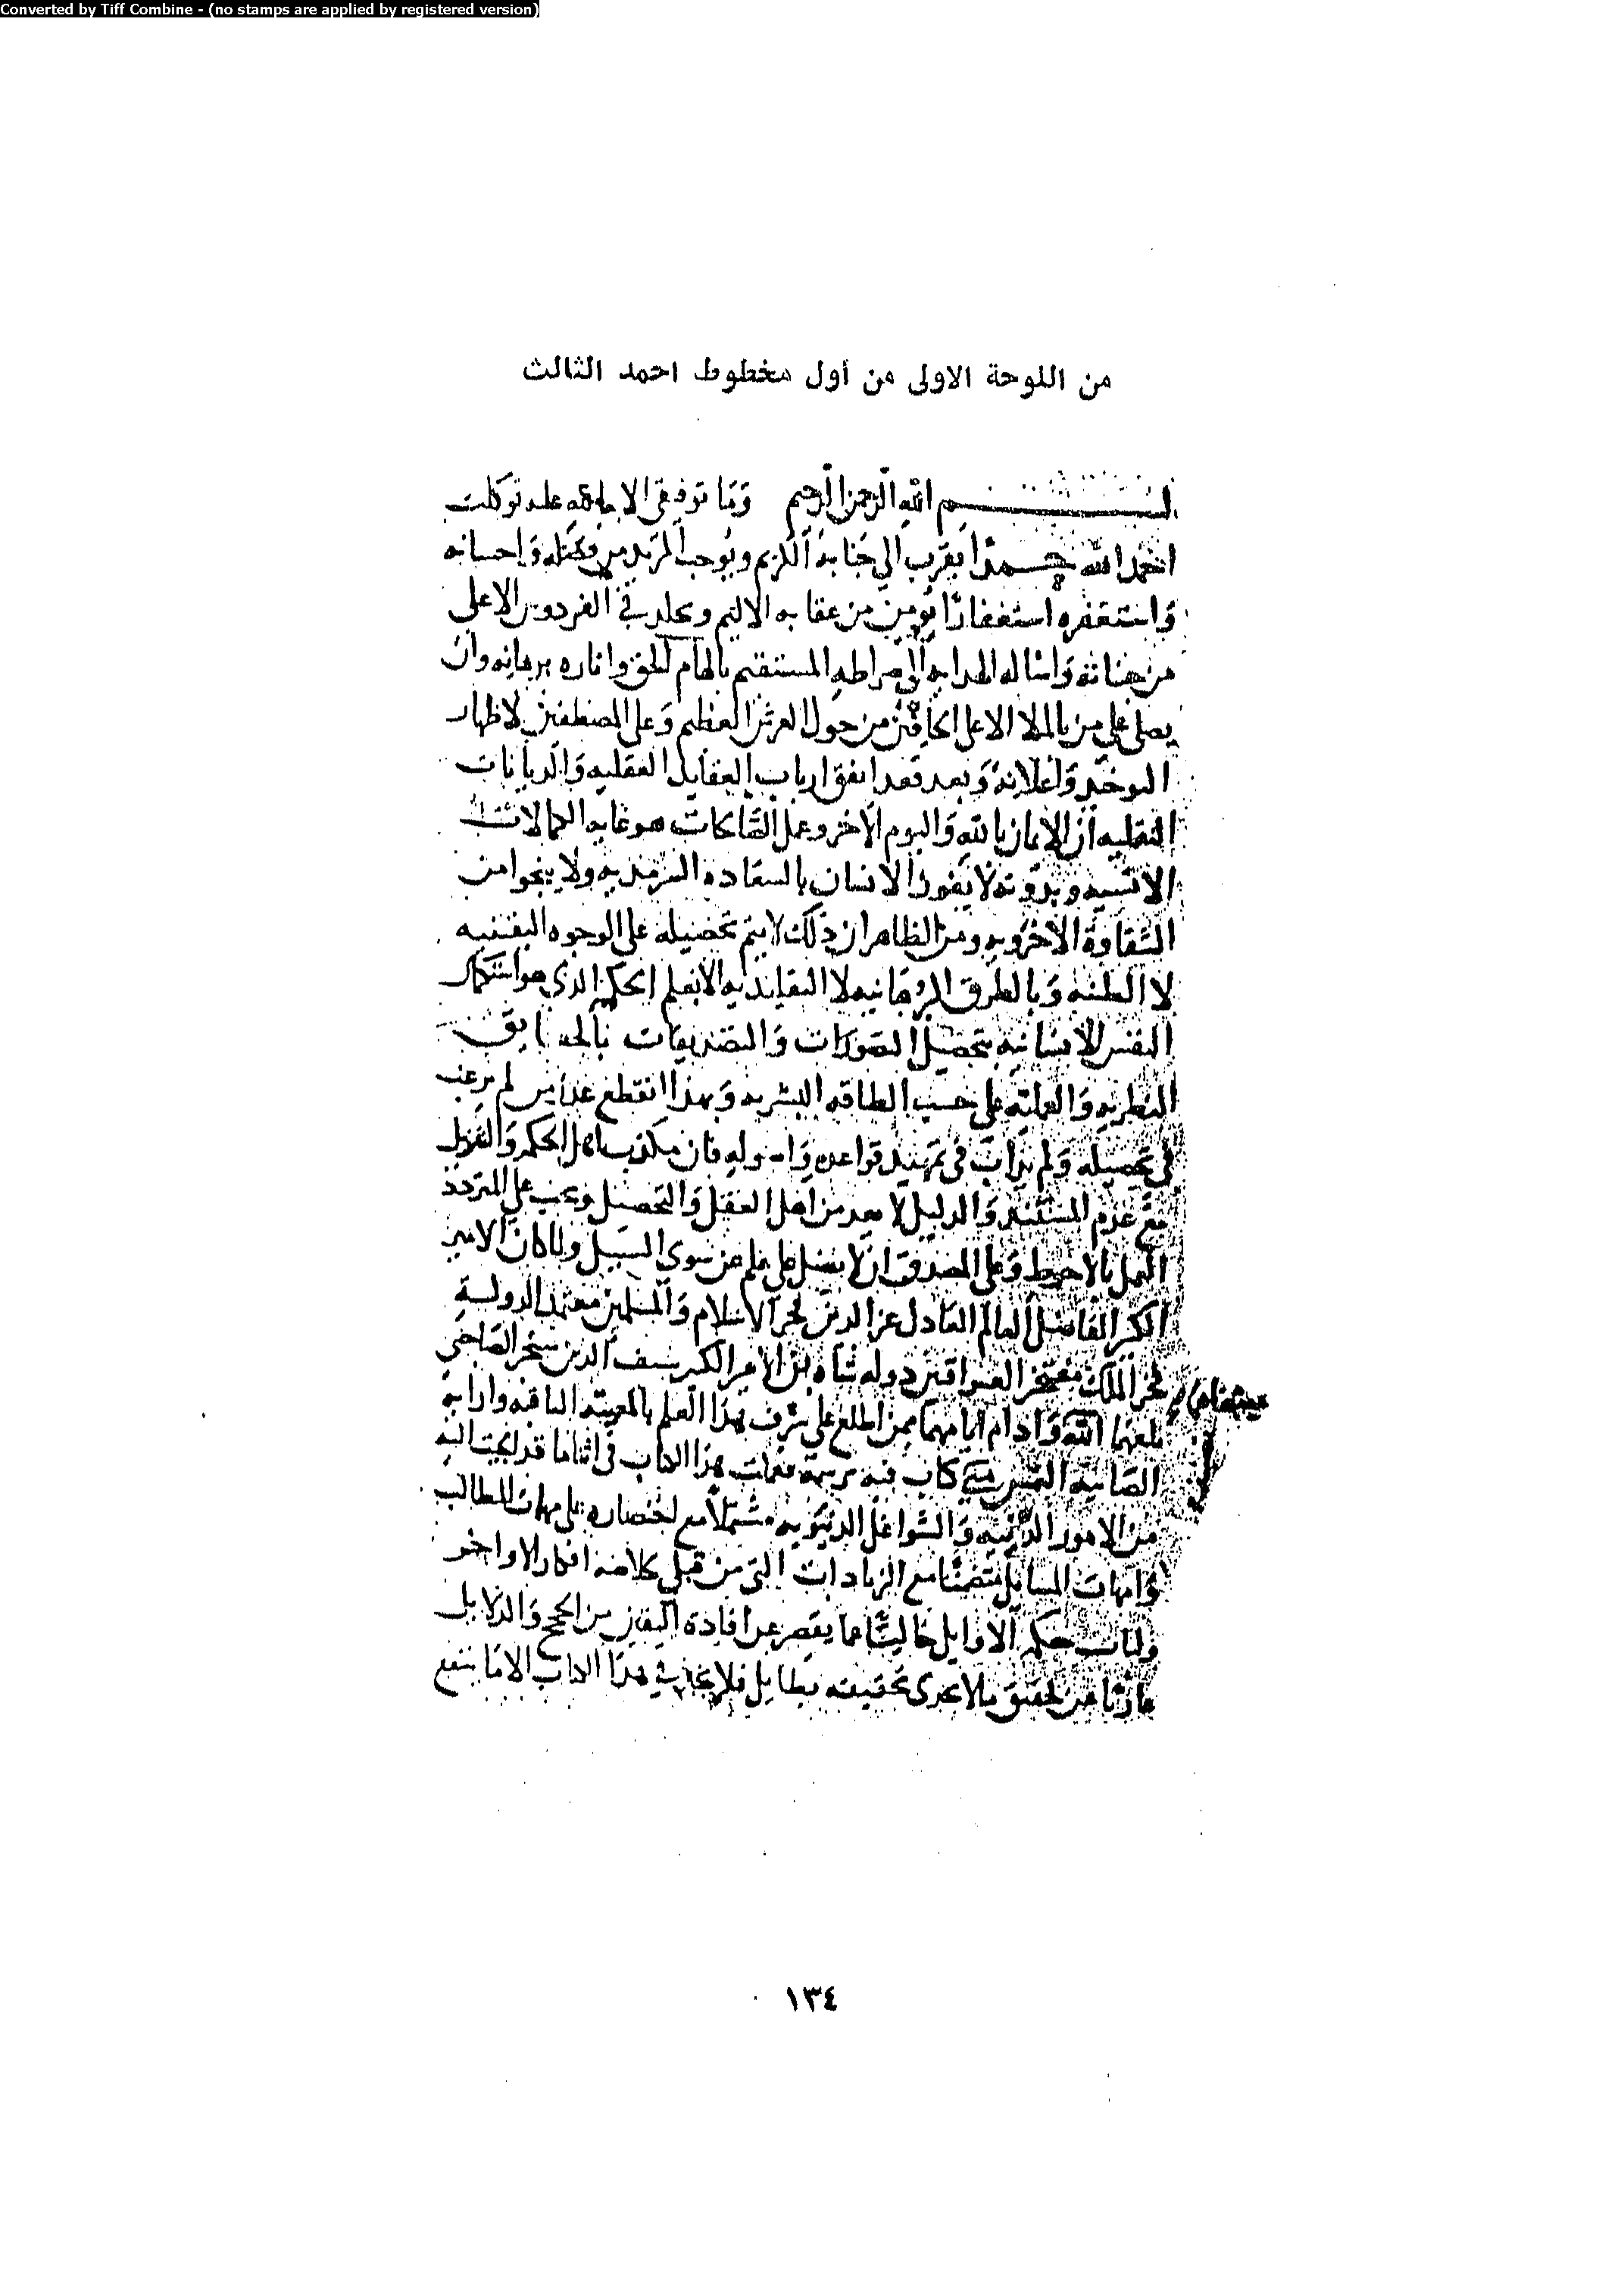 Converted by Tiff Combine - (no stamps are applied by registered version)
من اللوحة الاولى من أول مخطوط احمد الثالث
بسم الله الرحمن الرحيم وما توفيقي الا بالله عليه توكلت
احمد الله حمدا يقرب الى جنابه الكريم ويوجب المزيد من فضله واحسانه
واستغفره استغفارا يومن من عقابه الاليم ويخلد في الفردوس الاعلى
من جنانه واساله الهداية الى صراطه المستقيم بالهام الحق وانارة برهانه وان
يصلى على من بالملا الاعلى الحافين من حول العرش العظيم وعلى المصطفين لاظهار
التوحيد واعلانه وبعد فقد اتفق ارباب العقايد العقليه والديانات
النقليه ان الايمان بالله واليوم الاخر وعمل الصالحات هو غايه الكمالات
الانسيه وبدونه لا يفوز الانسان بالسعاده السرمديه ولا ينجوا من
الشقاوة الاخرويه ومن الظاهر ان ذلك لا يتم تحصيله على الوجوه اليقينيه
لا الظنيه وبالطرق البرهانيه لا التقليديه الا بعلم الحكمه الذى هو استكمال
النفس الانسانيه بتحصيل التصورات والتصديقات بالحقايق
النظريه والعمليه على حسب الطاقه البشريه وبهذا انقطع عذر من لم يرغب
في تحصيله ولم يداب في تمهيد قواعده واصوله فان مكذب اهل الحكمه والتنزيل
مع عدم المستند والدليل لا يعد من اهل العقل والتحصيل ويجب على المتردد
العمل بالاحوط وعلى المصدق ان لا يضل على علم عن سوى السبيل ولما كان الامير
الكبير الفاضل العالم العادل عز الدين فخر الاسلام والمسلمين معتمد الدولة
فخر الملك مفتخر العراقين دوله شاه بن الامير الكبير سيف الدين سنجر الصاحبى
بلغهما الله وادام ايامهما ممن اطلع على شرف هذا العلم بالمعيته الثاقبه وارايه
الصايبه التمس منى كتاب فيه برسمه فعملت هذا الكتاب في اثناء ما قد الجيت اليه
من الامور الدينيه والشواغل الدنيويه مشتملا مع اختصاره على مهمات المطالب
وامهات المسايل متضمنا مع الزيادات التي من قبلى خلاصه افكار الاواخر
ولباب حكمه الاوايل خاليا عما يقصر عن افادة اليقين من الحجج والدلايل
عاريا عن تحقيق ما لا يجدى تحقيقه بطايل فلا يجد في هذا الكتاب الا ما ينتفع
١٣٤